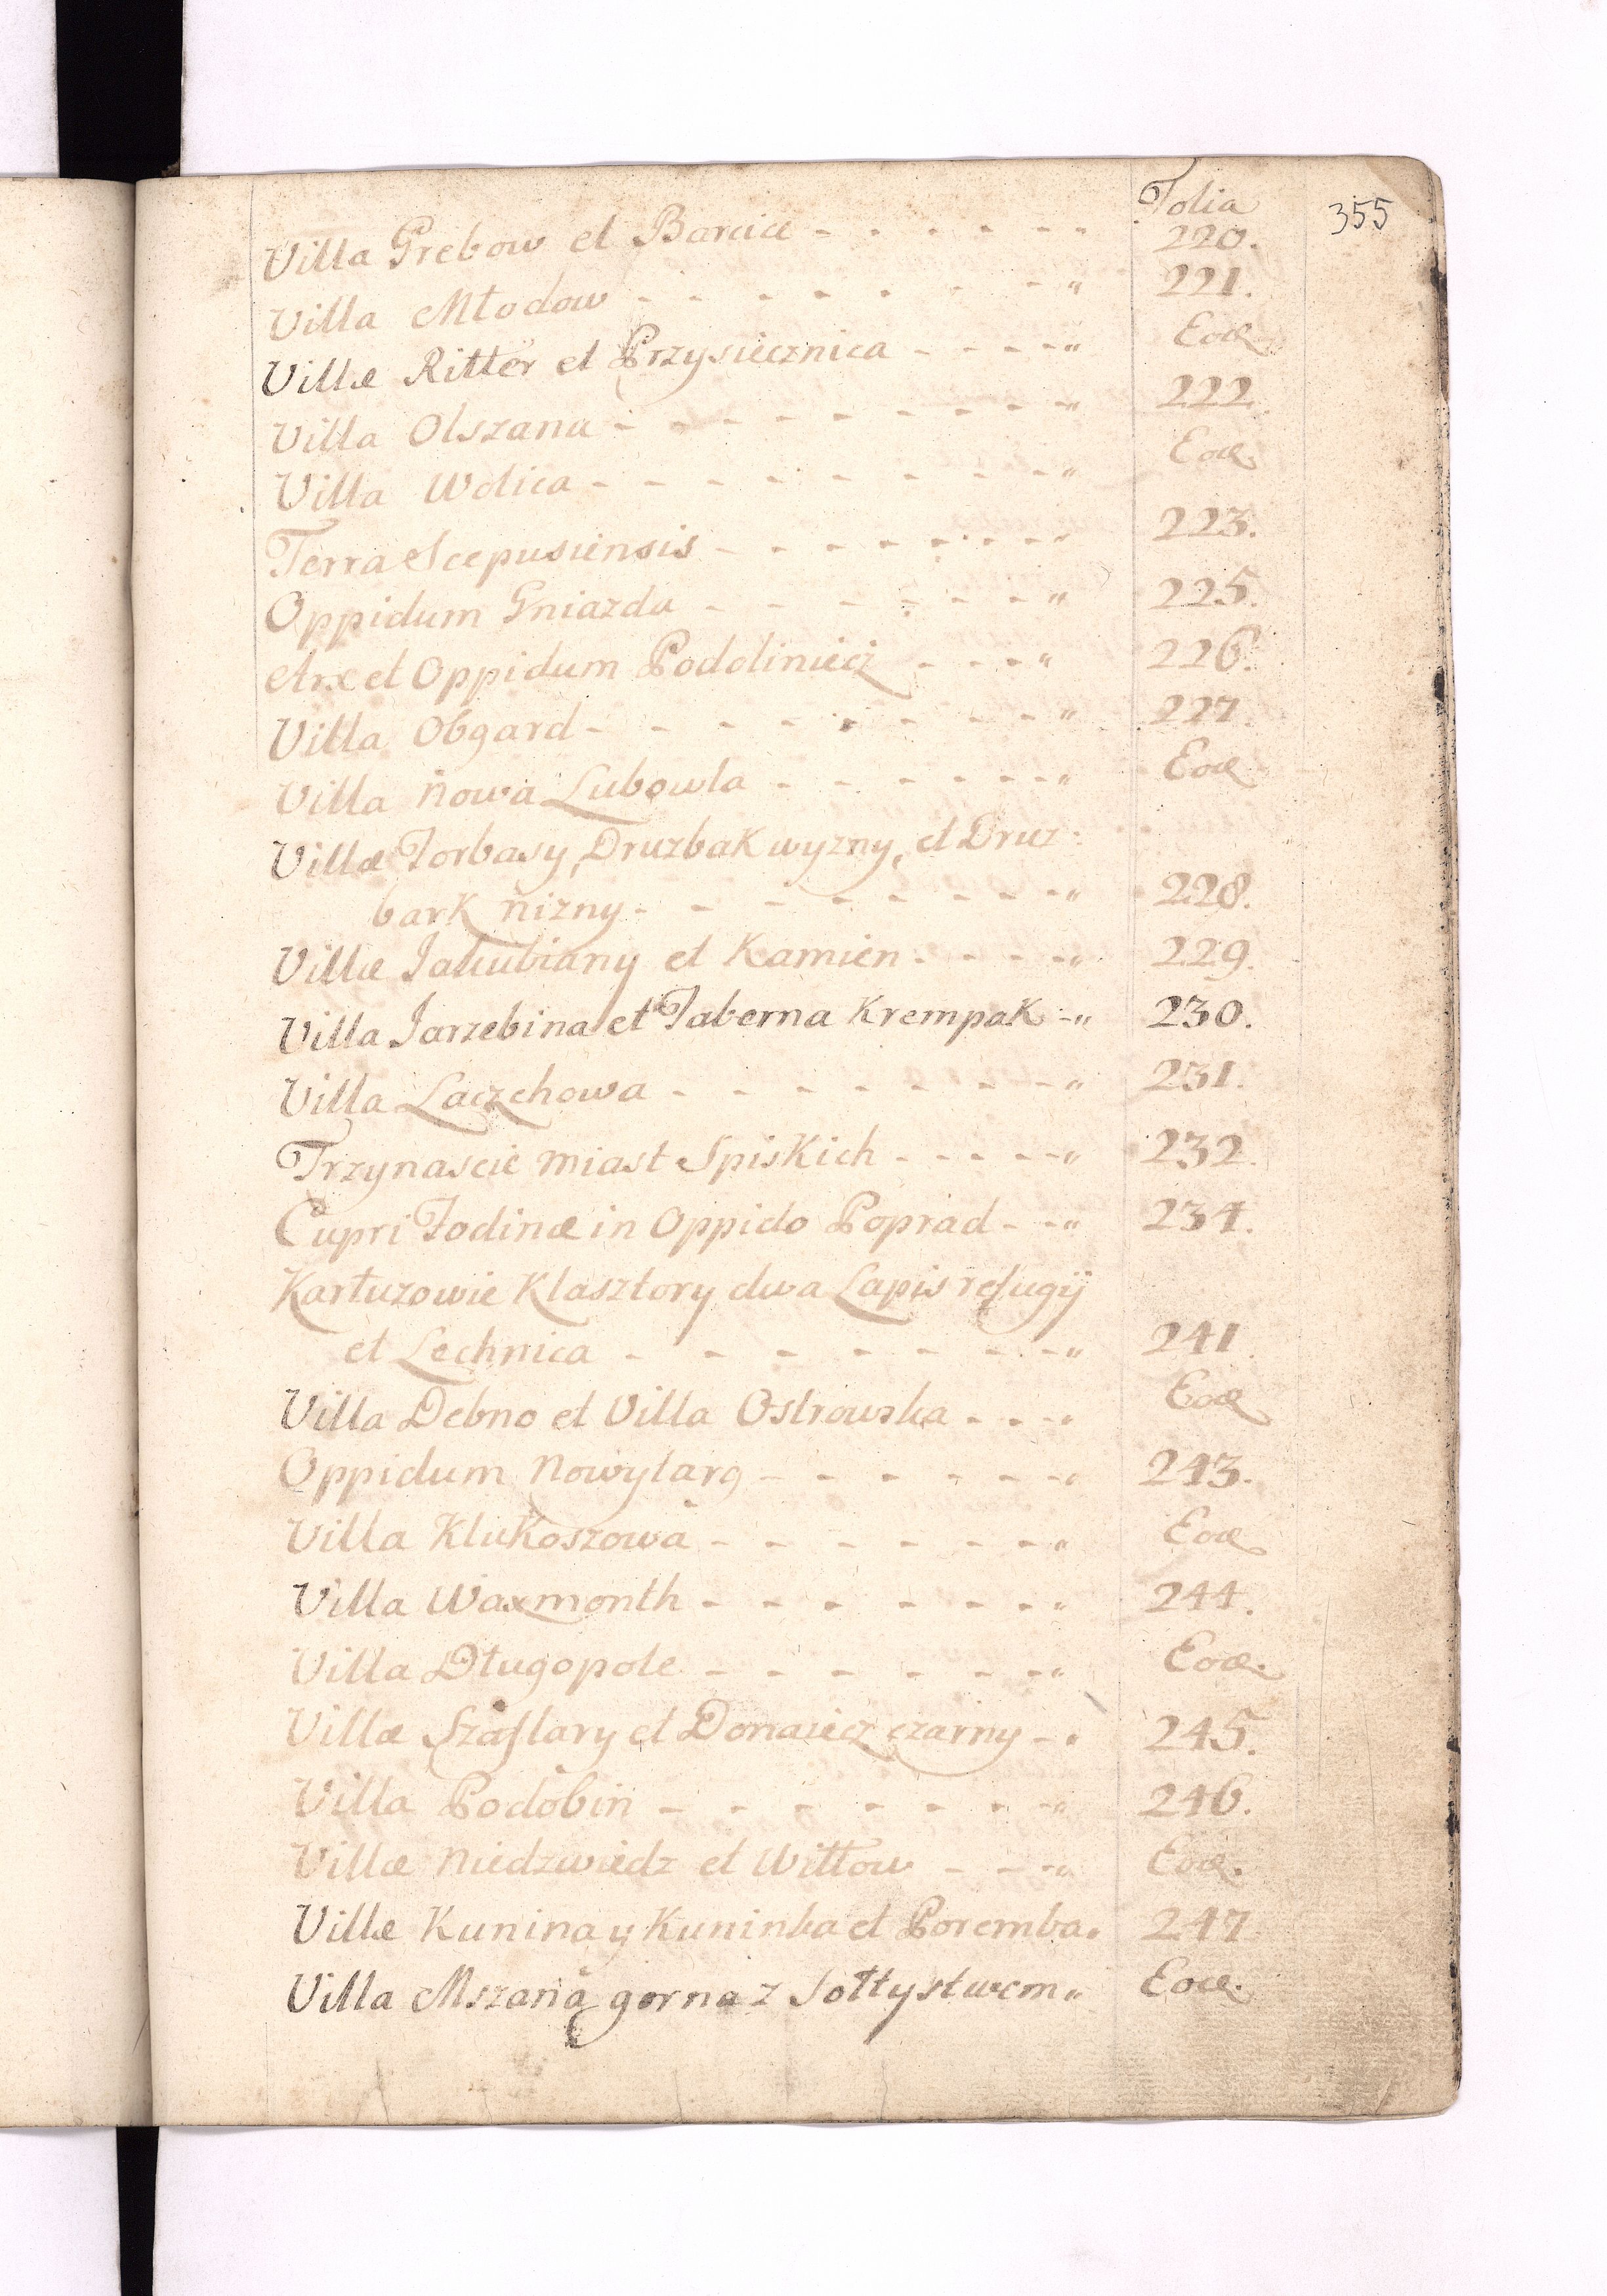 Folia
355
Villa Grebow et Barcice - - - - - - " 220.
Villa Młodow - - - - - - - - " 221.
Villæ Ritter et Przysiecznica - - - - " Eod
Villa Olszana - - - - - - - - - " 222
Villa Wolica - - - - - - - - - " Eod.
Terra Scepusiensis - - - - - - - - " 223.
Oppidum Gniazda - - - - - - - " 225.
Arx et Oppidum Podoliniecz - - - - " 226.
Villa Obgard - - - - - - - - - " 227.
Villa Nowa Lubowla - - - - - - - " Eod
Villæ Forbasy, Druzbak wyzny, et Druz:
bark nizny - - - - - - - - " 228.
Villæ Jakubiany et Kamien - - - - " 229.
Villa Jarzebina et Taberna Krempak - " 230.
Villa Laczchowa - - - - - - - - " 231.
Trzynascie miast Spiskich - - - - - " 232.
Cupri Fodinæ in Oppido Poprad - - " 234.
Kartuzowie Klasztory dwa Lapis refugij
et Lechnica - - - - - - - - " 241.
Villa Debno et Villa Ostrowska - - - - Eod
Oppidum Nowytarg - - - - - - - " 243.
Villa Klukoszowa - - - - - - - " Eod
Villa Waxmonth - - - - - - - " 244.
Villa Długopole - - - - - - - " Eod.
Villæ Szaflary et Donaiecz czarny - " 245.
Villa Podobin - - - - - - - - " 246.
Villæ Niedzwiedz et Wittow - - - " Eod.
Villæ Kunina y Kuninka et Poremba " 247
Villa Mszana gorna z Sołtystwem " Eod.